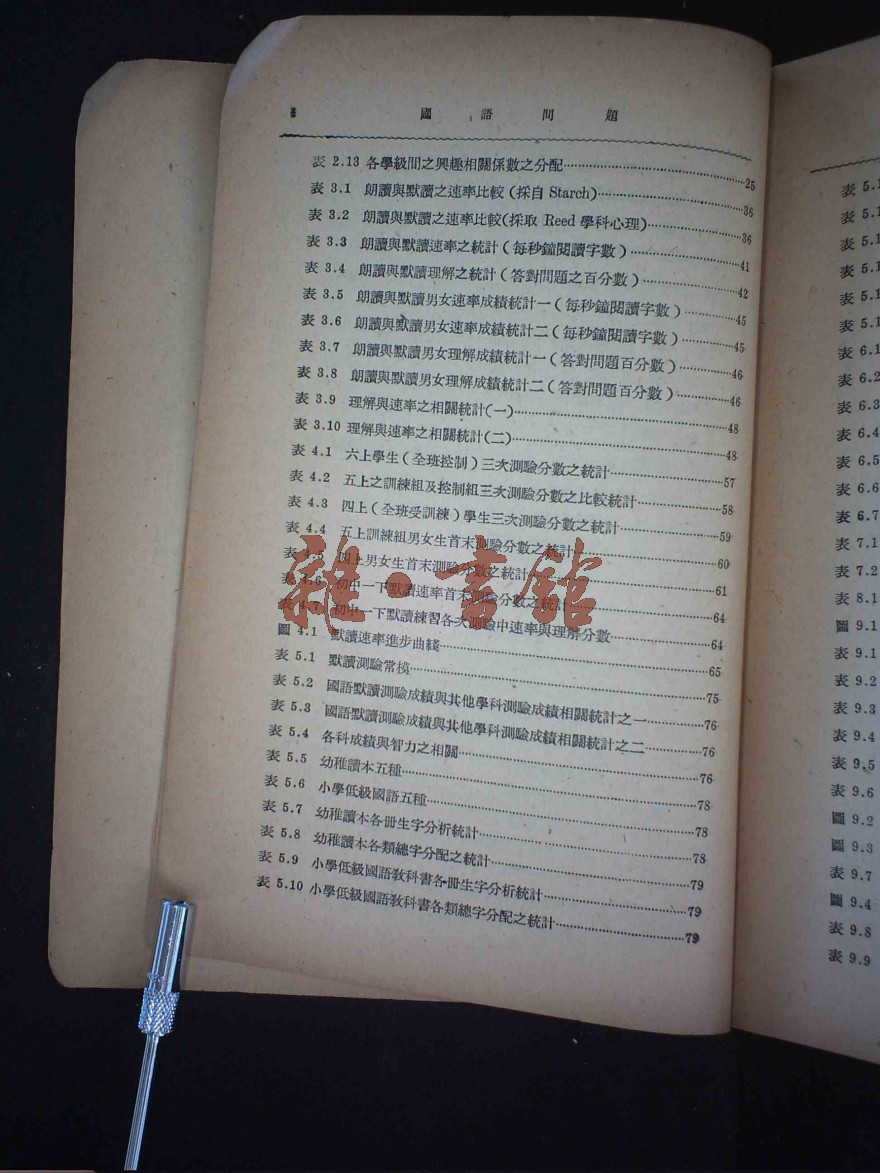 國語問題
表 2.13 各學級間之興趣相關係數之分配 25
表 3.1 朗讀與默讀之速率比較(採自 Starch) 36
表 3.2 朗讀與默讀之速率比較(採取 Reed 學科心理) 36
表 3.3 朗讀與默讀速率之統計(每秒鐘閱讀字數) 41
表 3.4 朗讀與默讀理解之統計(答對問題之百分數) 42
表 3.5 朗讀與默讀男女速率成績統計一(每秒鐘閱讀字數) 45
表 3.6 朗讀與默讀男女速率成績統計二(每秒鐘閱讀字數) 45
表 3.7 朗讀與默讀男女理解成績統計一(答對問題百分數) 46
表 3.8 朗讀與默讀男女理解成績統計二(答對問題百分數) 46
表 3.9 理解與速率之相關統計(一) 48
表 3.10 理解與速率之相關統計(二) 48
表 4.1 六上學生(全班控制)三次測驗分數之統計 57
表 4.2 五上之訓練組及控制組三次測驗分數之比較統計 58
表 4.3 四上(全班受訓練)學生三次測驗分數之統計 59
表 4.4 五上訓練組男女生首末測驗分數之統計 60
表 4.5 四上男女生首末測驗分數之統計 61
表 4.6 初中一下默讀速率首末測驗分數之統計 64
表 4.7 初中一下默讀練習各次測驗中速率與理解分數 64
圖 4.1 默讀速率進步曲綫 65
表 5.1 默讀測驗常模 75
表 5.2 國語默讀測驗成績與其他學科測驗成績相關統計之一 76
表 5.3 國語默讀測驗成績與其他學科測驗成績相關統計之二 76
表 5.4 各科成績與智力之相關 76
表 5.5 幼稚讀本五種 78
表 5.6 小學低級國語五種 78
表 5.7 幼稚讀本各冊生字分析統計 78
表 5.8 幼稚讀本各類總字分配之統計 79
表 5.9 小學低級國語敎科書各冊生字分析統計 79
表 5.10 小學低級國語敎科書各類總字分配之統計 79
雜·書館
表 5.1
表 5.1
表 5.1
表 5.1
表 5.1
表 5.1
表 6.1
表 6.2
表 6.3
表 6.4
表 6.5
表 6.6
表 6.7
表 7.1
表 7.2
表 8.1
圖 9.1
表 9.1
表 9.2
表 9.3
表 9.4
表 9.5
表 9.6
圖 9.2
圖 9.3
表 9.7
圖 9.4
表 9.8
表 9.9